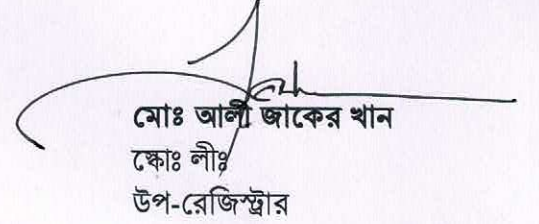 মোঃ আলী জাকের খান
স্কোঃ লীঃ
উপ-রেজিস্ট্রার